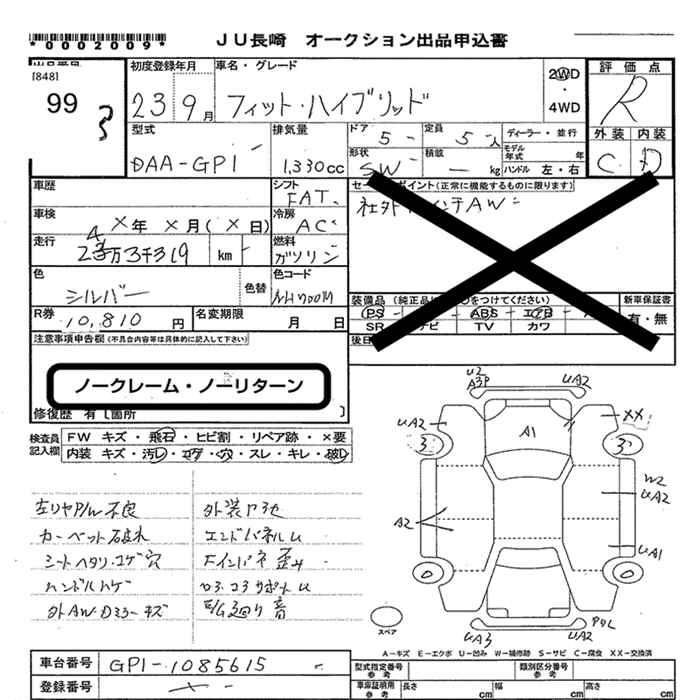 *0002009*
JU長崎 オークション出品申込書
[848]
99
初度登録年月
23 9月
車名・グレード
フィット・ハイブリッド
2WD
・
4WD
評価点
R
外装 内装
C D
型式
DAA-GP1
排気量
1,330cc
ドア 5
定員 5人
ディーラー・並行
形状 SW
積載 ー kg
モデル年式 年
ハンドル 左・右
車歴
シフト FAT
車検 X年 X月(X日)
冷房 AC
走行
km
燃料 ガソリン
色 シルバー
色替
色コード NH700M
R券 10,810円
名変期限 月 日
(正常に機能するものに限ります)
社外
AW
装備品
をつけてください)
新車保証書
PS
ABS
SR
TV
カワ
有・無
注意事項申告欄(不具合内容等は具体的に記入して下さい)
ノークレーム・ノーリターン
修復歴 有〔箇所 〕
検査員記入欄
FW キズ・飛石・ヒビ割・リペア跡・×要
内装 キズ・汚レ・コゲ・穴・スレ・キレ・破レ
左リヤP/W 不良
カーペット破れ
シートヘタリ・コゲ穴
ハンドルハゲ
外AW・Dミラーキズ
エンドパネルU
Fインパネ歪み
コアサポートU
U2
A3P
UA2
UA2
XX
A1
3
3
W2
UA2
A2
UA1
0
0
スペア
UA3
UA2
A-キズ E-エクボ U-凹み W-補修跡 S-サビ C-腐食 XX-交換済
車台番号 GP1-1085615
登録番号
型式指定番号 参考
類別区分番号 参考
車庫証明用 参考
長さ cm
幅 cm
高さ cm